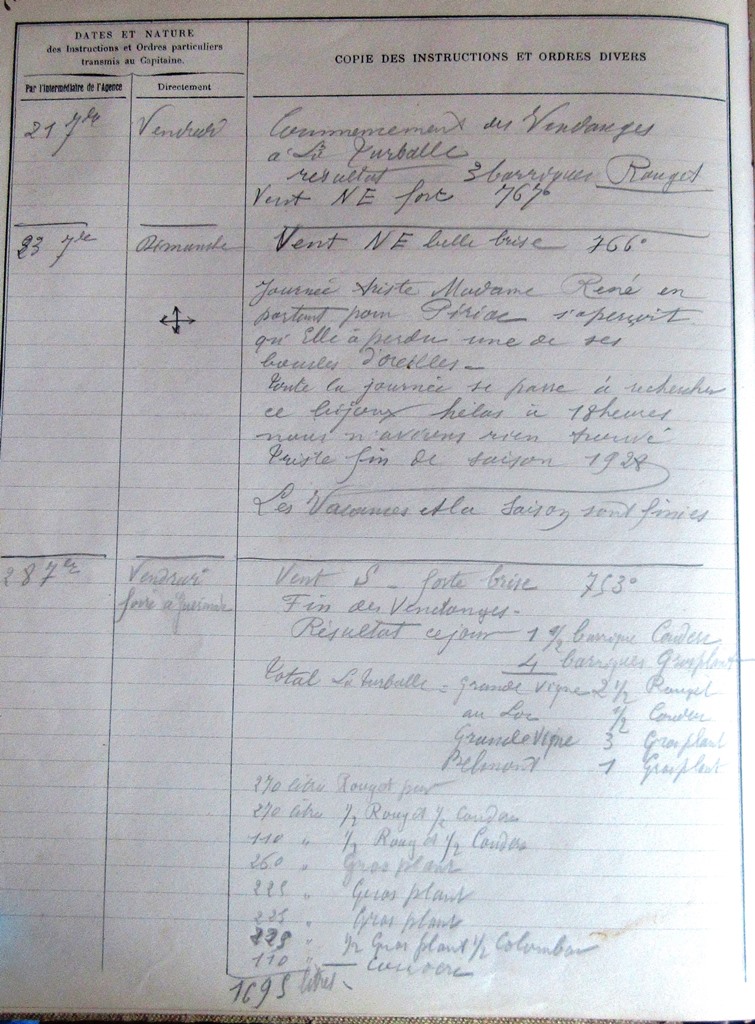 DATES ET NATURE
des Instructions et Ordres particuliers
transmis au Capitaine.
COPIE DES INSTRUCTIONS ET ORDRES DIVERS
Par l'Intermédiaire de l'Agence
Directement
21 7bre Vendredi Commencement des Vendanges
à La Turballe
resultat 3 barriques Rouget
Vent NE fort 767°
23 7re Dimanche Vent NE belle brise 766°
Journée triste Madame René en
partant pour Piriac s'aperçoit
qu'Elle à perdu une de ses
boucles d'oreilles -
Toute la journée se passe à rechercher
ce bijoux hélas à 18 heures
nous n'avions rien trouvé
Triste fin de saison 1928
Les Vacances et la Saison sont finies
28 7re Vendredi Vent S - forte brise 753°
foire à Guérande Fin des Vendanges -
Résultat ce jour - 1 1/2 barrique Couderc
4 barriques Grosplant
Total La Turballe = Grande Vigne 2 1/2 Rouget
au Loc 1/2 Couderc
Grande Vigne 3 Grosplant
1 Grosplant
270 litres Rouget pur
270 litres 1/2 Rouget 1/2 Couderc
110 " 1/2 Rouget 1/2 Couderc
260 " Gros plant
225 " Gros plant
225 " Gros plant
225 " 1/2 Gros plant 1/2 Colombar
110 — Couderc
1695 litres -